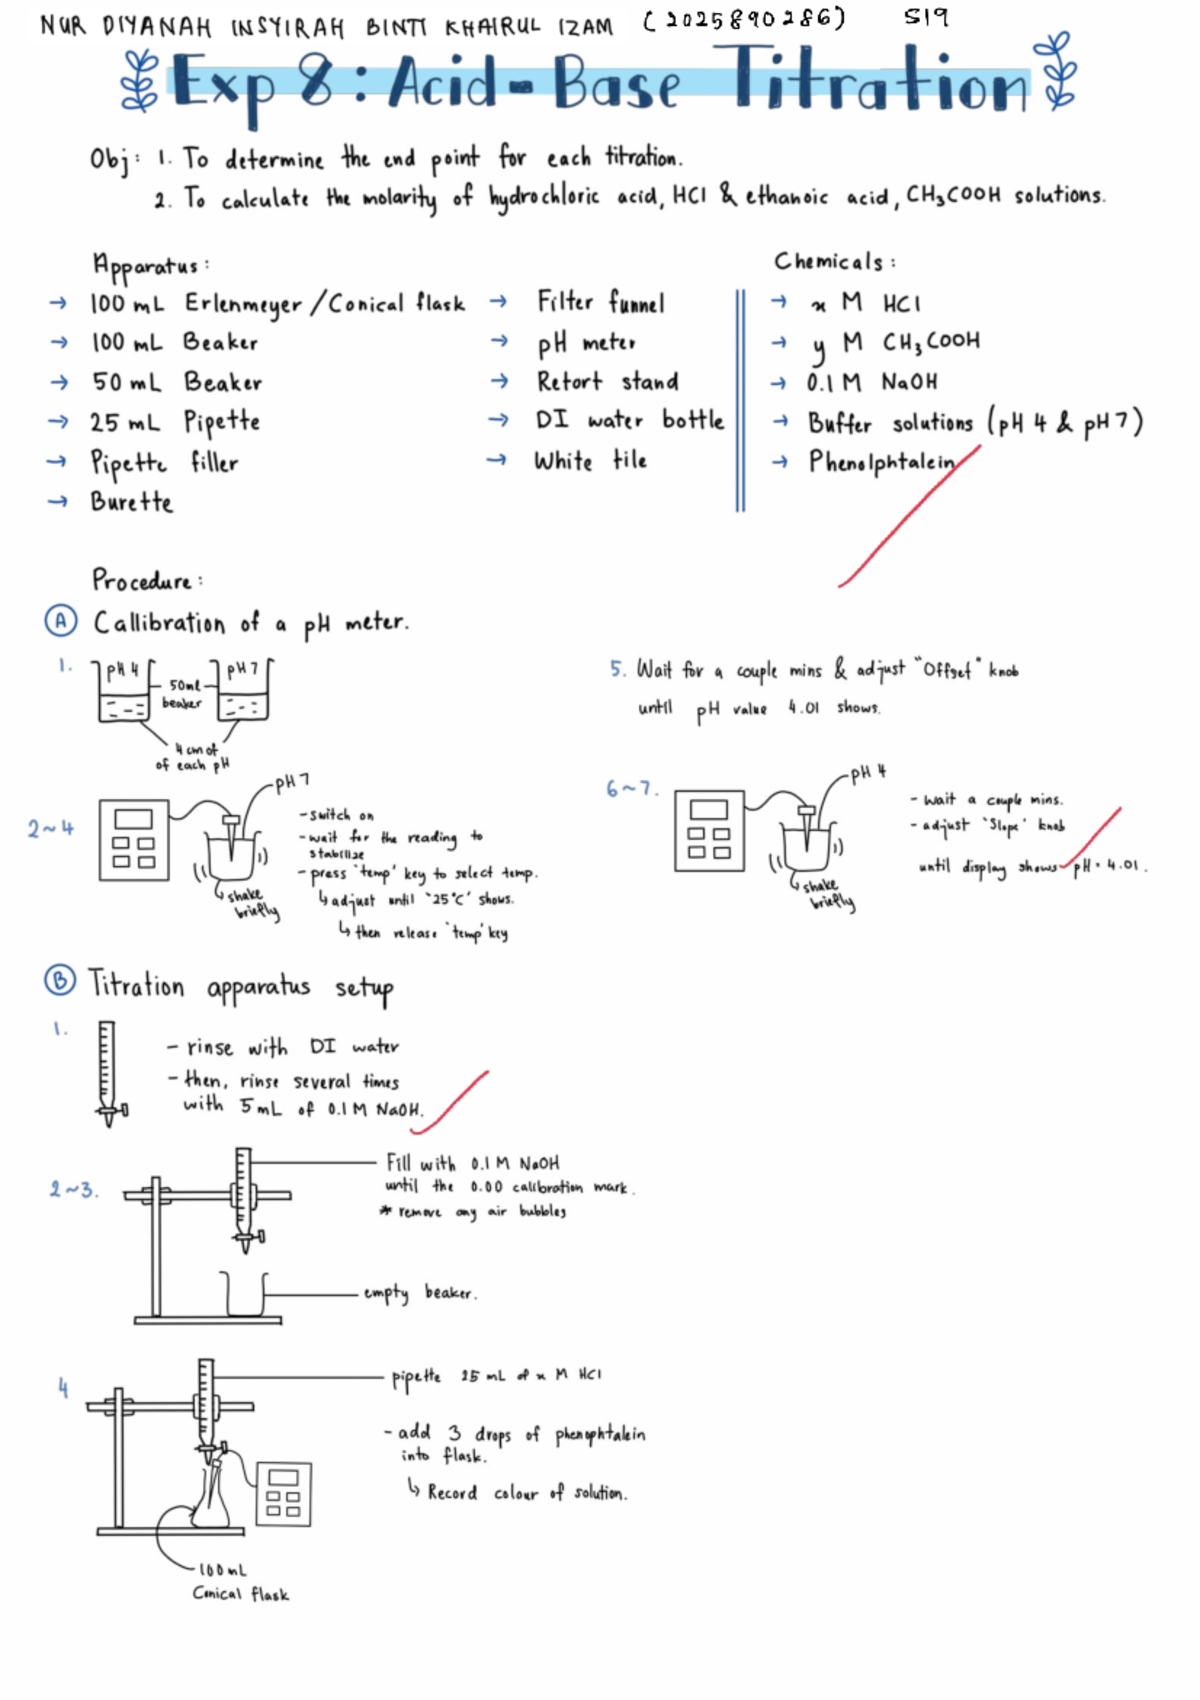 NUR DIYANAH INSYIRAH BINTI KHAIRUL IZAM (2025890286) S19
Exp 8: Acid-Base Titration
Obj: 1. To determine the end point for each titration.
2. To calculate the molarity of hydrochloric acid, HCl & ethanoic acid, CH₃COOH solutions.
Apparatus:
→ 100 mL Erlenmeyer/Conical flask
→ 100 mL Beaker
→ 50 mL Beaker
→ 25 mL Pipette
→ Pipette filler
→ Burette
→ Filter funnel
→ pH meter
→ Retort stand
→ DI water bottle
→ White tile
Chemicals:
→ x M HCl
→ y M CH₃COOH
→ 0.1 M NaOH
→ Buffer solutions (pH 4 & pH 7)
→ Phenolphtalein
Procedure:
A Callibration of a pH meter.
1.
pH 4
pH 7
50ml
beaker
4 cm of
of each pH
2~4
pH 7
shake
briefly
- switch on
- wait for the reading to
stabilize
- press 'temp' key to select temp.
↳ adjust until '25°C' shows.
↳ then release 'temp' key
5. Wait for a couple mins & adjust "Offset" knob
until pH value 4.01 shows.
6~7.
pH 4
shake
briefly
- wait a couple mins.
- adjust 'Slope' knob
until display shows pH = 4.01.
B Titration apparatus setup
1.
- rinse with DI water
- then, rinse several times
with 5 mL of 0.1 M NaOH.
2~3.
Fill with 0.1 M NaOH
until the 0.00 calibration mark.
* remove any air bubbles
empty beaker.
4
pipette 25 mL of x M HCl
- add 3 drops of phenophtalein
into flask.
↳ Record colour of solution.
100 mL
Conical flask